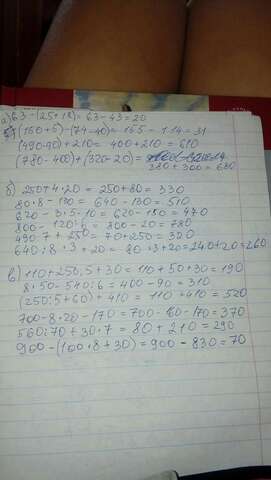 а) 63 - (25+18)= 63 - 43 = 20
(150+5) - (74+40)= 155 - 114 = 31
(490-90) + 210 = 400 + 210 = 610
(780 - 400) + (320 - 20) =
380 + 300 = 680
б) 250+4·20 = 250+80 = 330
80·8 - 130 = 640 - 130 = 510
620 - 3·5·10 = 620 - 150 = 470
800 - 120:6 = 800 - 20 = 780
490:7 + 250 = 70+250 = 320
640:8·3+20 = 80·3+20=240+20=260
в) 110+250:5+30 = 110+50+30=190
8·50-540:6 = 400-90 = 310
(250:5+60)+410 = 110+410 = 520
700-8·20-170 = 700-160-170=370
560:70+30·7 = 80+210=290
900-(100·8+30)=900-830=70